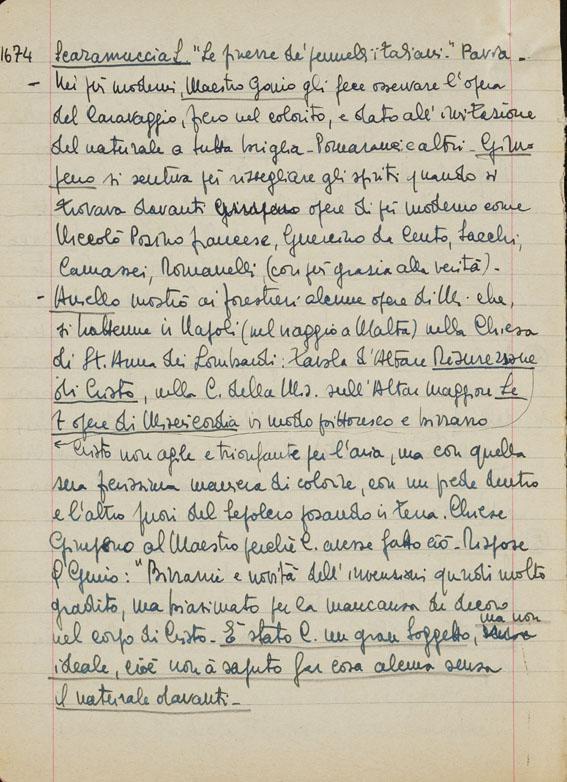 1674 Scaramuccia L. "Le finezze de' pennelli italiani." Pavia -
- Nei più moderni, Maestro Genio gli fece osservare l'opera
del Caravaggio, fiero nel colorito, e dato all'imitazione
del naturale a tutta briglia - Pomarancie altri - Giru-
peno si sentiva più risvegliare gli spiriti quando si
trovava davanti Girupeno opere di più moderno come
Niccolò Posino francese, Guercino da Cento, Sacchi,
Camassei, Romanelli, (con più grazia alla verità) -
- Aurelio mostrò ai forestieri alcune opere di M. che,
si trattenne in Napoli (nel viaggio a Malta) nella Chiesa
di St. Anna dei Lombardi: tavola d'Altare Resurezione
di Cristo, nella C. della Ms. sull'Altar maggiore Le
7 opere di Misericordia in modo pittoresco e bizzarro
← Cristo non agile e trionfante per l'aria, ma con quella
sua ferissima maniera di colorire, con un piede dentro
e l'altro fuori del Sepolcro posando in terra. Chiese
Girupeno al Maestro perchè C. avesse fatto ciò - Rispose
il Genio: "Bizzarrie e novità dell'invenzioni quindi molto
gradito, ma biasimato per la mancanza di decoro
nel corpo di Cristo - È stato C. un gran Soggetto, ma non
ideale, cioè non à saputo far cosa alcuna senza
il naturale davanti -